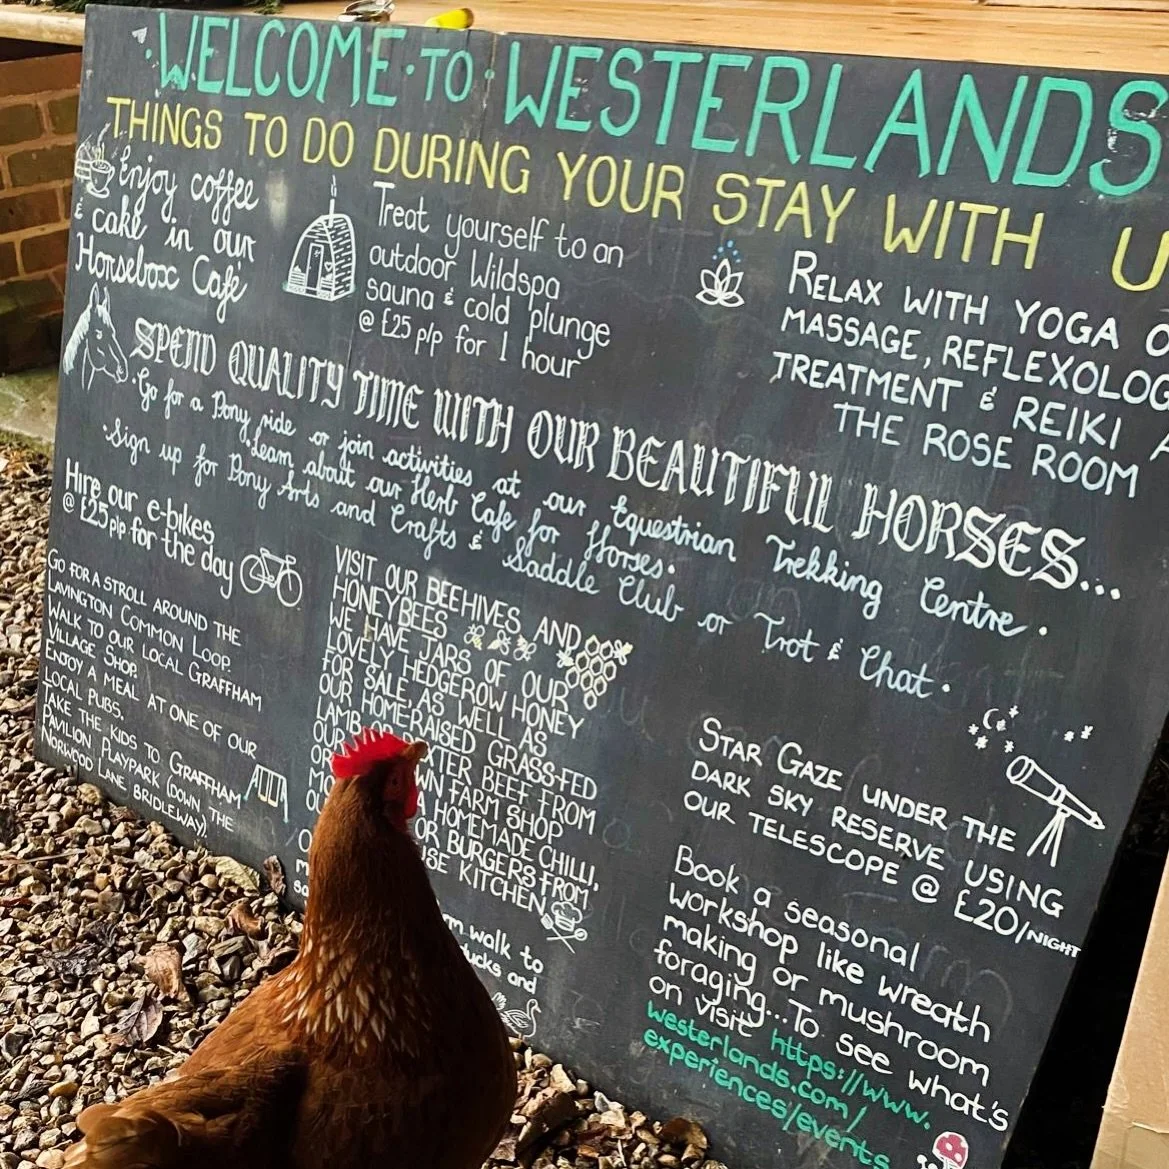 WELCOME · TO · WESTERLANDS
THINGS TO DO DURING YOUR STAY WITH U
Enjoy coffee
& cake in our
Horsebox Café
Treat yourself to an
outdoor Wildspa
sauna & cold plunge
@ £25 p/p for 1 hour
RELAX WITH YOGA
MASSAGE, REFLEXOLOG
TREATMENT & REIKI A
THE ROSE ROOM
SPEND QUALITY TIME WITH OUR BEAUTIFUL HORSES...
· Go for a Pony ride or join activities at our Equestrian Trekking Centre.
· Learn about our Herb Cafe for Horses.
· Sign up for Pony Arts and Crafts & Saddle Club or Trot & Chat.
Hire our e-bikes
@ £25 p/p for the day
GO FOR A STROLL AROUND THE
LAVINGTON COMMON LOOP.
WALK TO OUR LOCAL GRAFFHAM
VILLAGE SHOP.
ENJOY A MEAL AT ONE OF OUR
LOCAL PUBS.
TAKE THE KIDS TO GRAFFHAM
PAVILION PLAYPARK (DOWN THE
NORWOOD LANE, BRIDLEWAY)
VISIT OUR BEEHIVES AND
HONEYBEES
WE HAVE JARS OF OUR
LOVELY HEDGEROW HONEY
FOR SALE, AS WELL AS
OUR HOMERAISED GRASS-FED
LAMB BEEF FROM
OUR FARM SHOP
HOMEMADE CHILLI,
OR BURGERS FROM
KITCHEN
walk to
and
STAR GAZE UNDER THE
DARK SKY RESERVE USING
OUR TELESCOPE @ £20/NIGHT
Book a seasonal
workshop like wreath
making or mushroom
foraging...To see what's
on visit https://www.
westerlands.com/
experiences/events